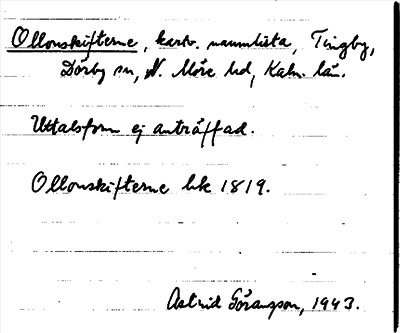 Ollonskifterne, kartv. namnlista, Tingby,
Dörby sn, N. Möre hd, Kalm. län.
Uttalsform ej anträffad.
Ollonskifterne lsk 1819.
Astrid Göransson, 1943.